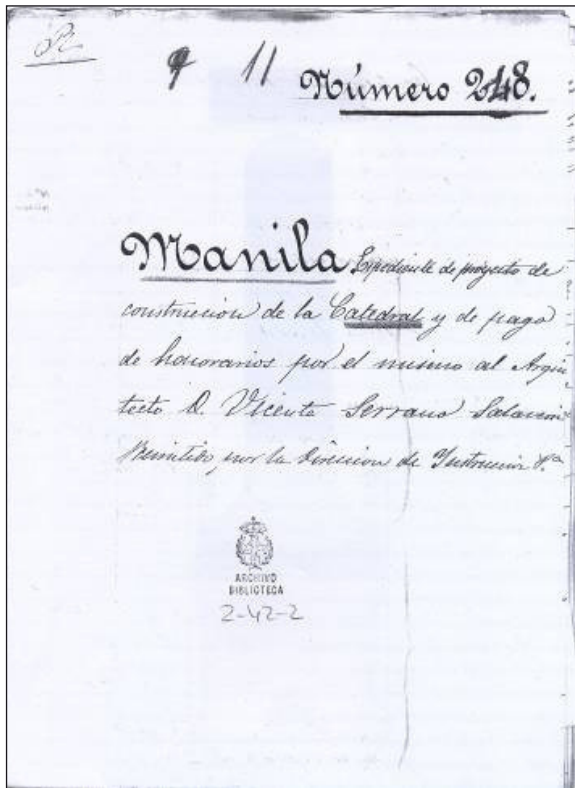 9 11 Número 248.
Manila Expediente de proyecto de
construccion de la Catedral y de pago
de honorarios por el mismo al Arqui
tecto D. Vicente Serrano Salaverri
Remitido por la Direccion de Instruccion P.ca
ARCHIVO
BIBLIOTECA
2-42-2